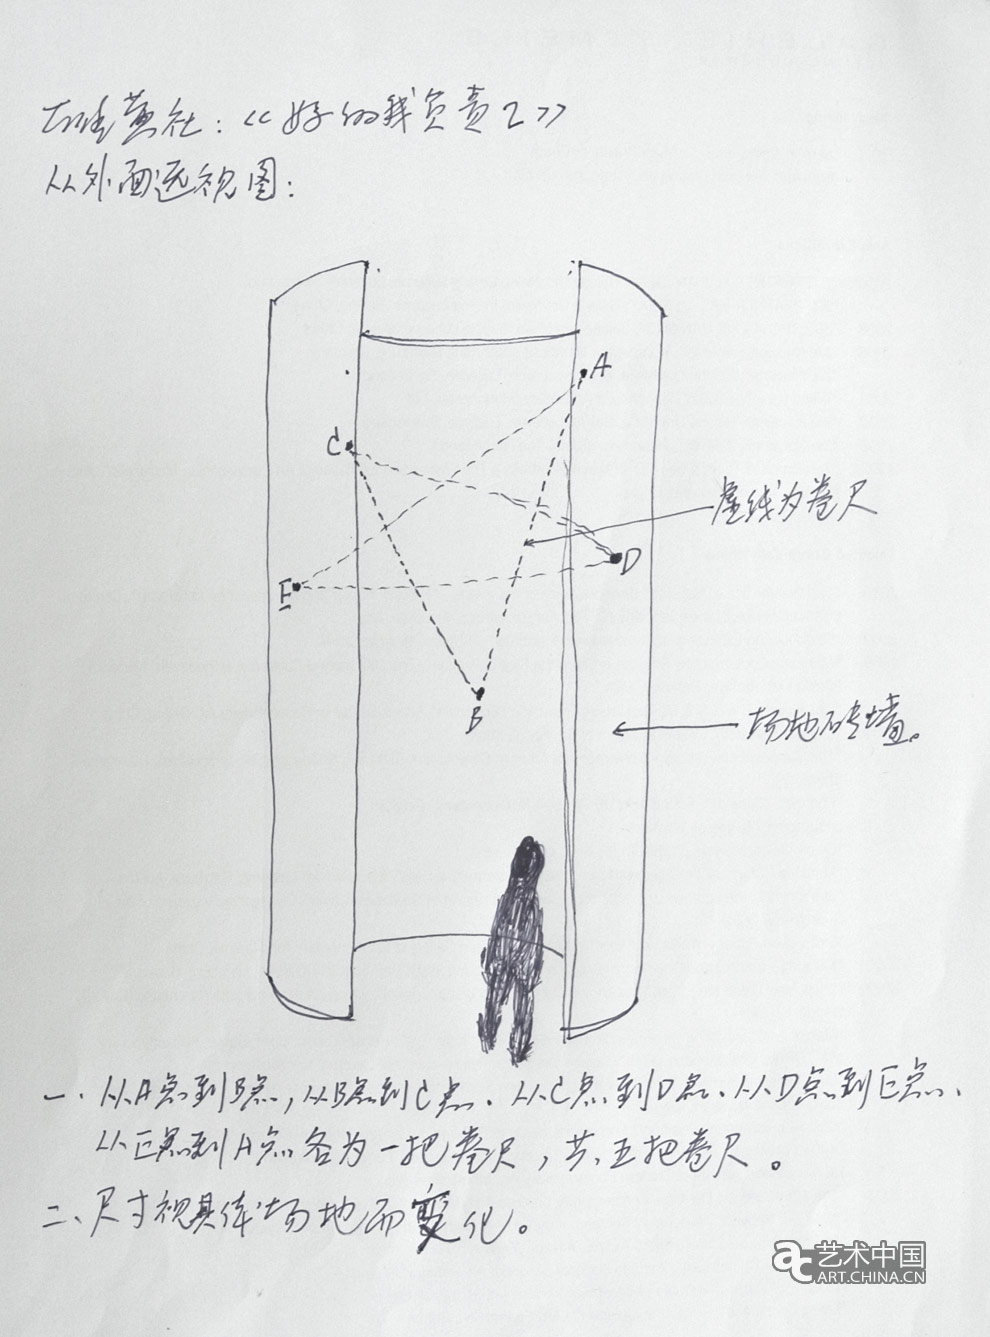 社:《好的我负责2》
从外面透视图:
A
C
虚线为卷尺
D
E
B
场地砖墙。
一、从A点到B点,从B点到C点、从C点到D点、从D点到E点、
从E点到A点各为一把卷尺,共五把卷尺。
二、尺寸视具体场地而变化。
ac 艺术中国
ART.CHINA.CN